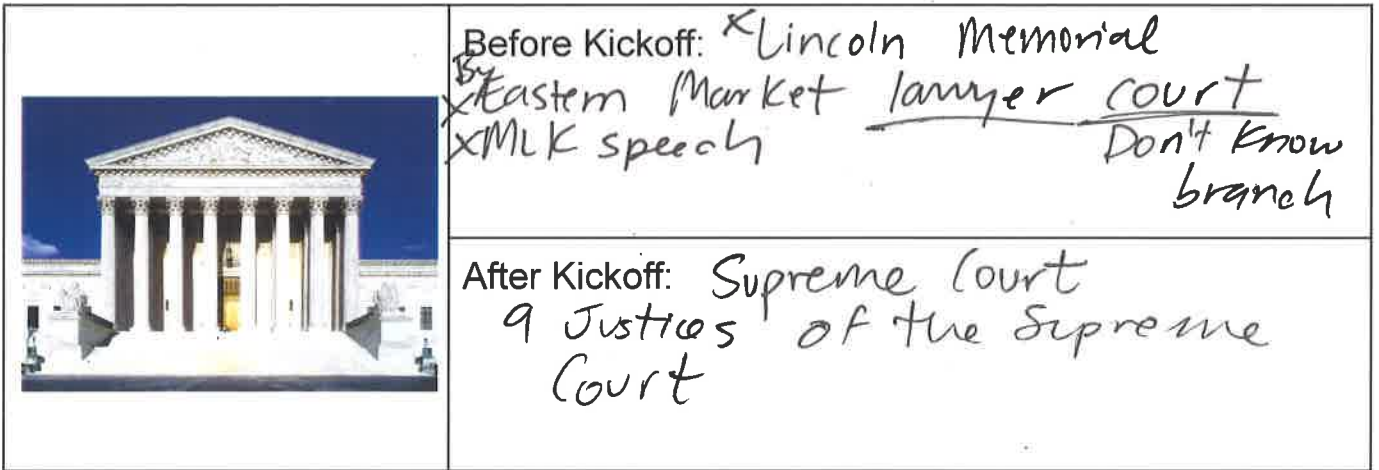 Before Kickoff: x Lincoln Memorial
By
x Eastern Market lawyer court
x MLK speech Don't know
branch
After Kickoff: Supreme Court
9 Justices of the Supreme
Court